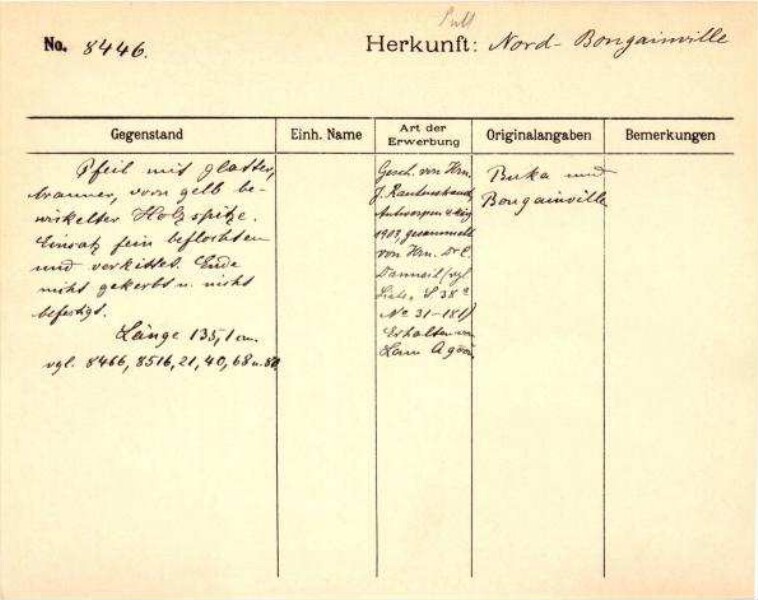 No. 8446.
Herkunft: Nord-Bougainville
Gegenstand
Einh. Name
Art der Erwerbung
Originalangaben
Bemerkungen
Pfeil mit glatter,
brauner, vorn gelb be-
wickelter Holzspitze.
Einsatz fein beflochten
und verkittet. Ende
nicht gekerbt u. nicht
befestigt.
Länge 135,1 cm.
vgl. 8466, 8516, 21, 40, 68 u. 80
Gesch. von Hrn.
J. Rautenstrauch
Antwerpen
1903, gesammelt
von Hrn. Dr. E.
Danneil (vgl
Liste, S 38
No 31-181)
Erhalten von
Buka und
Bougainville